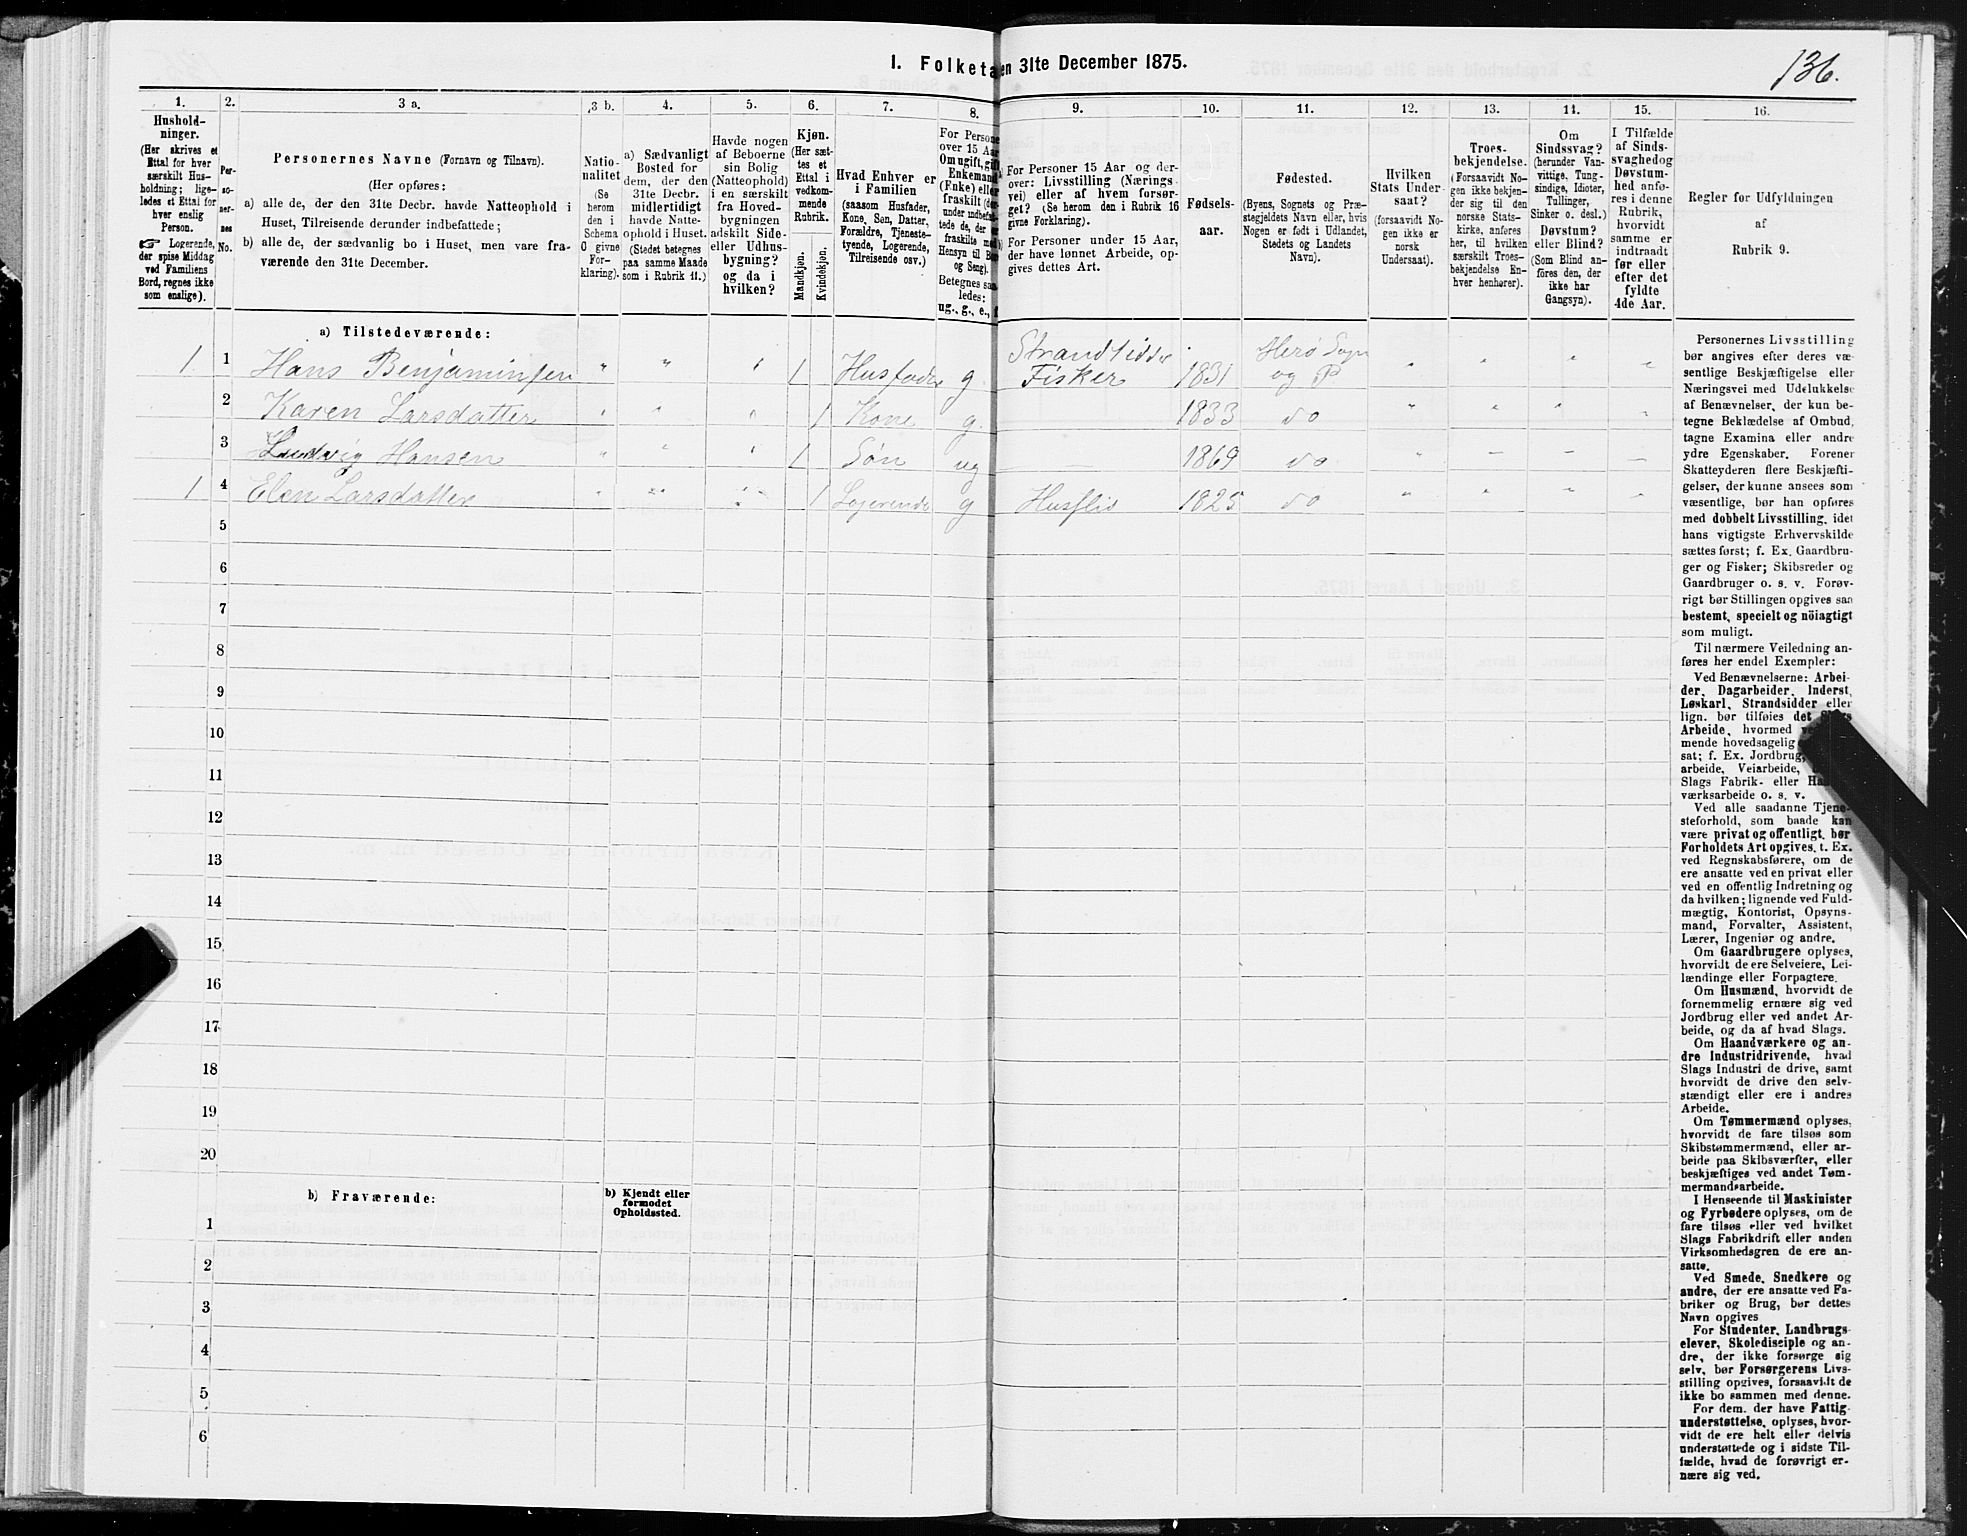 I. Folketa en 31te December 1875.
136.
1.
2.
3 a.
3 b.
4.
5.
6.
7.
8.
9.
10.
11.
12.
13.
14.
15.
16.
Hushold-
ninger.
(Her skrives et
Ettal for hver
særskilt Hus-
holdning; lige-
ledes et Ettal for
hver enslig
Person.
☞ Logerende,
der spise Middag
ved Familiens
Bord, regnes ikke
som enslige).
Per-
so-
ner-
nes
No.
Personernes Navne (Fornavn og Tilnavn).
(Her opføres:
a) alle de, der den 31te Decbr. havde Natteophold i
Huset, Tilreisende derunder indbefattede;
b) alle de, der sædvanlig bo i Huset, men vare fra-
værende den 31te December.
Natio-
nalitet
(Se
herom
den i
Schema
O givne
For-
klaring).
a) Sædvanligt
Bosted for
dem, der den
31te Decbr.
midlertidigt
havde Natte-
ophold i Huset.
(Stedet betegnes
paa samme Maade
som i Rubrik 11.)
Havde nogen
af Beboerne
sin Bolig
(Natteophold)
i en særskilt
fra Hoved-
bygningen
adskilt Side-
eller Udhus-
bygning?
og da i
hvilken?
Kjøn.
(Her sæt-
tes et
Ettal i
vedkom-
mende
Rubrik.
Mandkjøn.
Kvindekjøn.
Hvad Enhver er
i Familien
(saasom Husfader,
Kone, Søn, Datter,
Forældre, Tjeneste-
tyende, Logerende,
Tilreisende osv.)
For Persone
over 15 Aar
Om ugift, gift
Enkemand
(Enke) elle
fraskilt (de
under indbefat-
tede de, der
fraskilte m
Hensyn til Bo
og Seng).
Betegnes saa
ledes:
ug., g., e., f
a) For Personer 15 Aar og der-
over: Livsstilling (Nærings-
vei) eller af hvem forsør-
get? (Se herom den i Rubrik 16
givne Forklaring).
b) For Personer under 15 Aar,
der have lønnet Arbeide, op-
gives dettes Art.
Fødsels-
aar.
Fødested.
(Byens, Sognets og Præ-
stegjeldets Navn eller, hvis
Nogen er født i Udlandet,
Stedets og Landets
Navn).
Hvilken
Stats Under-
saat?
(forsaavidt No-
gen ikke er
norsk
Undersaat).
Troes-
bekjendelse.
(Forsaavidt No-
gen ikke bekjen-
der sig til den
norske Stats-
kirke, anføres
her, til hvilken
særskilt Troes-
bekjendelse En-
hver henhører).
Om
Sindssvag?
(herunder Van-
vittige, Tung-
sindige, Idioter,
Tullinger,
Sinker o. desl.)
Døvstum?
eller Blind?
(Som Blind an-
føres den, der
ikke har
Gangsyn).
I Tilfælde
af Sinds-
svaghed og
Døvstum-
hed anfø-
res i denne
Rubrik,
hvorvidt
samme er
indtraadt
før eller
efter det
fyldte
4de Aar.
Regler for Udfyldningen
af
Rubrik 9.
a) Tilstedeværende:
1 1 Hans Benjaminsen " " " 1 Husfader g. Strandsidder Fisker 1831 Herø Sogn og P " " " "
2 Karen Larsdatter " " " 1 Kone g. 1833 do " " " "
3 Ludvig Hansen " " " 1 Søn ug 1869 do " — — —
1 4 Elen Larsdatter " " " 1 Logerende g Husflid 1825 do " " " "
5
6
7
8
9
10
11
12
13
14
15
16
17
18
19
20
b) Fraværende:
b) Kjendt eller
formodet
Opholdssted.
1
2
3
4
5
6
Personernes Livsstilling
bør angives efter deres væ-
sentlige Beskjæftigelse eller
Næringsvei med Udelukkelse
af Benævnelser, der kun be-
tegne Beklædelse af Ombud,
tagne Examina eller andre
ydre Egenskaber. Forener
Skatteyderen flere Beskjæfti-
gelser, der kunne ansees som
væsentlige, bør han opføres
med dobbelt Livsstilling, idet
hans vigtigste Erhvervskilde
sættes først; f. Ex. Gaardbru-
ger og Fisker; Skibsreder og
Gaardbruger o. s. v. Forøv-
rigt bør Stillingen opgives saa
bestemt, specielt og nöiagtigt
som muligt.
Til nærmere Veiledning an-
føres her endel Exempler:
Ved Benævnelserne: Arbei-
der, Dagarbeider, Inderst,
Løskarl, Strandsidder eller
lign. bør tilføies det Slags
Arbeide, hvormed ve
mende hovedsagelig
sat; f. Ex. Jordbrug,
arbeide, Veiarbeide,
Slags Fabrik- eller Haand-
værksarbeide o. s. v.
Ved alle saadanne Tjene-
steforhold, som baade kan
være privat og offentligt, bør
Forholdets Art opgives, t. Ex.
ved Regnskabsførere, om de
ere ansatte ved en privat eller
ved en offentlig Indretning og
da hvilken; lignende ved Fuld-
mægtig, Kontorist, Opsyns-
mand, Forvalter, Assistent,
Lærer, Ingeniør og andre.
Om Gaardbrugere oplyses,
hvorvidt de ere Selveiere, Lei-
lændinge eller Forpagtere.
Om Husmænd, hvorvidt de
fornemmelig ernære sig ved
Jordbrug eller ved andet Ar-
beide, og da af hvad Slags.
Om Haandværkere og an-
dre Industridrivende, hvad
Slags Industri de drive, samt
hvorvidt de drive den selv-
stændigt eller ere i andres
Arbeide.
Om Tømmermænd oplyses,
hvorvidt de fare tilsøs som
Skibstømmermænd, eller ar-
beide paa Skibsværfter, eller
beskjæftiges ved andet Tøm-
mermandsarbeide.
I Henseende til Maskinister
og Fyrbødere oplyses, om de
fare tilsøs eller ved hvilket
Slags Fabrikdrift eller anden
Virksomhedsgren de ere an-
satte.
Ved Smede, Snedkere og
andre, der ere ansatte ved Fa-
briker og Brug, bør dettes
Navn opgives
For Studenter, Landbrugs-
elever, Skoledisciple og an-
dre, der ikke forsørge sig
selv, bør Forsørgerens Livs-
stilling opgives, forsaavidt de
ikke bo sammen med denne.
For dem, der have Fattig-
understøttelse, oplyses, hvor-
vidt de ere helt eller delvis
understøttede og i sidste Til-
fælde, hvad de forøvrigt er-
nære sig ved.